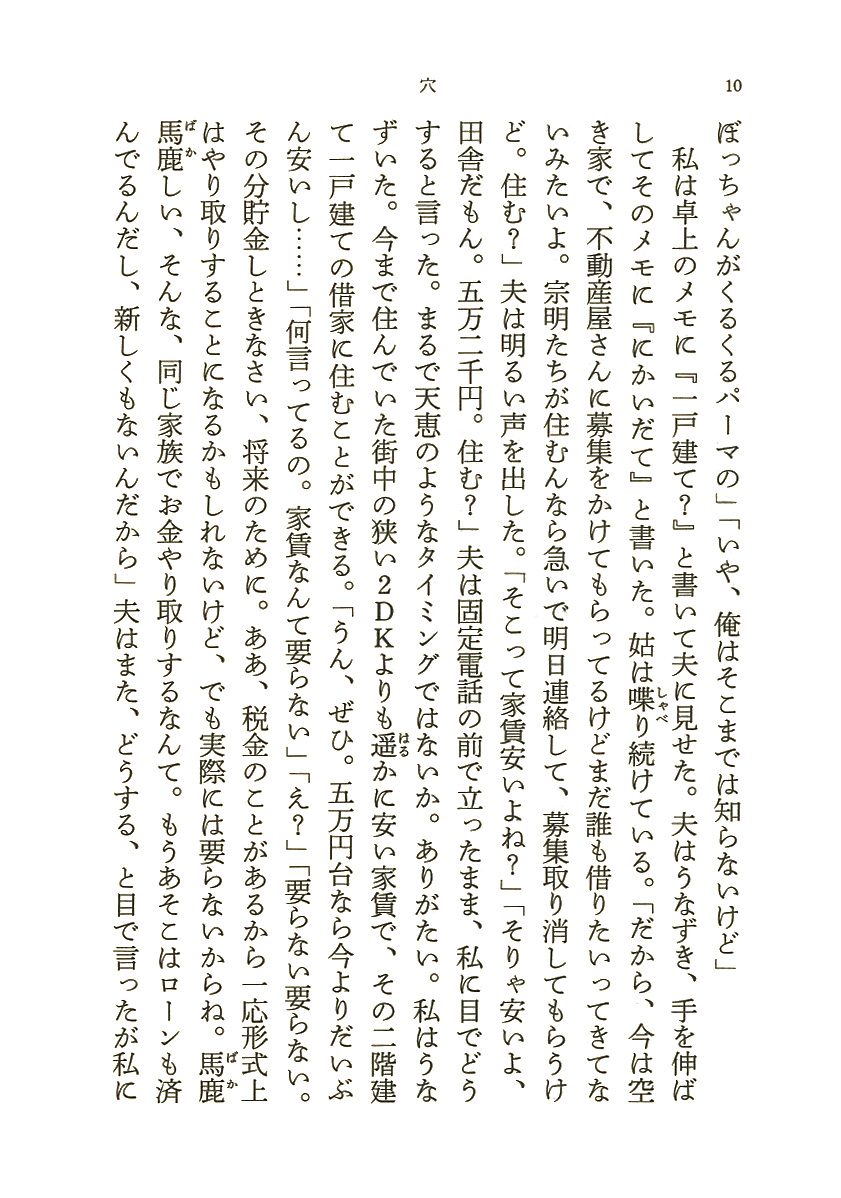 穴
10
ぼっちゃんがくるくるパーマの」「いや、俺はそこまでは知らないけど」
私は卓上のメモに『一戸建て？』と書いて夫に見せた。夫はうなずき、手を伸ば
してそのメモに『にかいだて』と書いた。姑は喋り続けている。「だから、今は空
き家で、不動産屋さんに募集をかけてもらってるけどまだ誰も借りたいってきてな
いみたいよ。宗明たちが住むんなら急いで明日連絡して、募集取り消してもらうけ
ど。住む？」夫は明るい声を出した。「そこって家賃安いよね？」「そりゃ安いよ、
田舎だもん。五万二千円。住む？」夫は固定電話の前で立ったまま、私に目でどう
すると言った。まるで天恵のようなタイミングではないか。ありがたい。私はうな
ずいた。今まで住んでいた街中の狭い２ＤＫよりも遥かに安い家賃で、その二階建
て一戸建ての借家に住むことができる。「うん、ぜひ。五万円台なら今よりだいぶ
ん安いし……」「何言ってるの。家賃なんて要らない」「え？」「要らない要らない。
その分貯金しときなさい、将来のために。ああ、税金のことがあるから一応形式上
はやり取りすることになるかもしれないけど、でも実際には要らないからね。馬鹿
馬鹿しい、そんな、同じ家族でお金やり取りするなんて。もうあそこはローンも済
んでるんだし、新しくもないんだから」夫はまた、どうする、と目で言ったが私に
しゃべ
はる
ばか
ばか